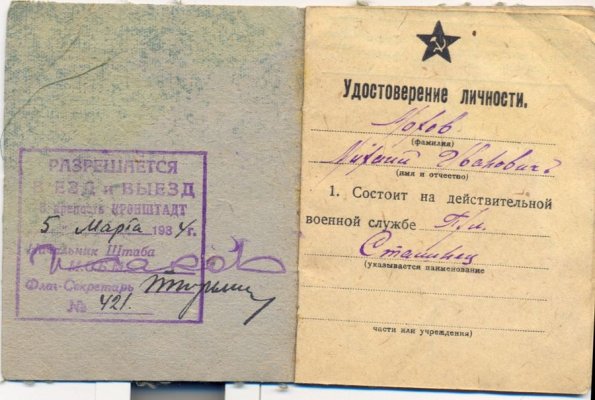 РАЗРЕШАЕТСЯ
В'ЕЗД и ВЫЕЗД
в крепость КРОНШТАДТ
5 Марта 1934 г.
Начальник Штаба
Флаг-Секретарь
№ 421.
Удостоверение личности.
(фамилия)
Иванович
(имя и отчество)
1. Состоит на действительной
военной службе
Сталинец
(указывается наименование
части или учреждения)